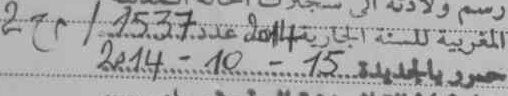 رسم ولادته الى سجلات الحالة المدنية
المغربية للسنة الجارية 2014 عدد 1537 / م ح 2
حرر بالجديدة 15 - 10 - 2014